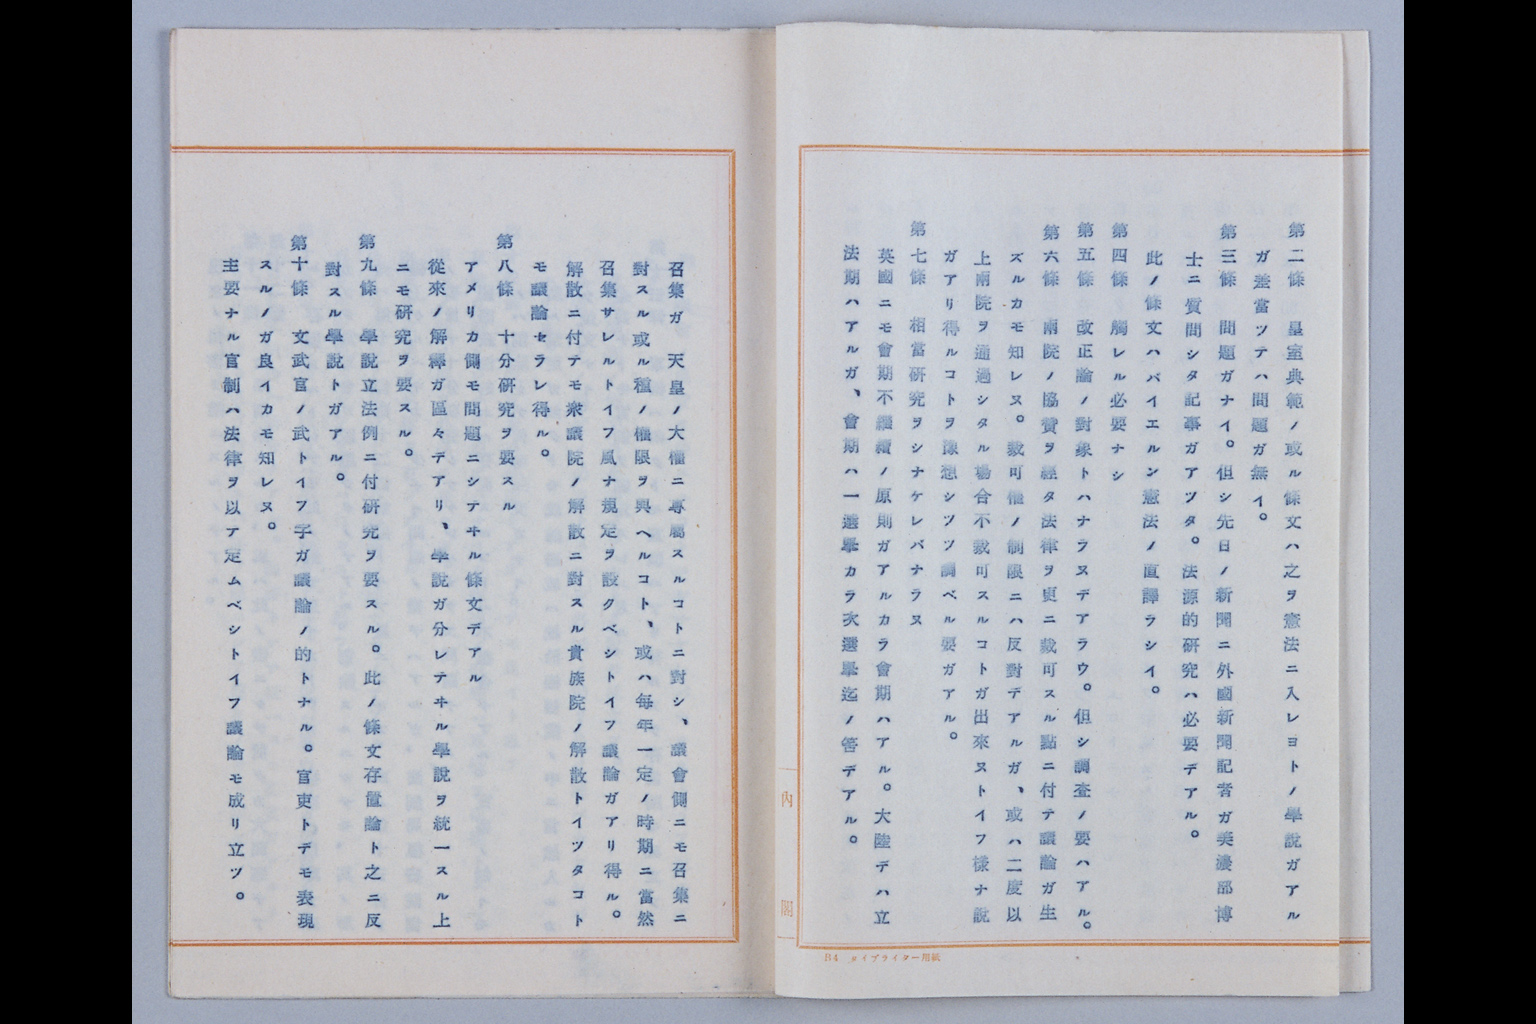 第二條　皇室典範ノ或ル條文ハ之ヲ憲法ニ入レヨトノ學說ガアル
ガ差當ツテハ問題ガ無イ。
第三條　問題ガナイ。但シ先日ノ新聞ニ外國新聞記者ガ美濃部博
士ニ質問シタ記事ガアツタ。法源的研究ハ必要デアル。
此ノ條文ハバイエルン憲法ノ直譯ラシイ。
第四條　觸レル必要ナシ
第五條　改正論ノ對象トハナラヌデアラウ。但シ調査ノ要ハアル。
第六條　兩院ノ協贊ヲ經タ法律ヲ更ニ裁可スル點ニ付テ議論ガ生
ズルカモ知レヌ。裁可權ノ制限ニハ反對デアルガ、或ハ二度以
上兩院ヲ通過シタル場合不裁可スルコトガ出來ヌトイフ樣ナ說
ガアリ得ルコトヲ豫想シツツ調ベル要ガアル。
第七條　相當硏究ヲシナケレバナラヌ
英國ニモ會期不繼續ノ原則ガアルカラ會期ハアル。大陸デハ立
法期ハアルガ、會期ハ一選擧カラ次選擧迄ノ筈デアル。
內閣
B4　タイプライター用紙
召集ガ　天皇ノ大權ニ專屬スルコトニ對シ、議會側ニモ召集ニ
對スル或ル種ノ權限ヲ與ヘルコト、或ハ每年一定ノ時期ニ當然
召集サレルトイフ風ナ規定ヲ設クベシトイフ議論ガアリ得ル。
解散ニ付テモ衆議院ノ解散ニ對スル貴族院ノ解散トイツタコト
モ議論セラレ得ル。
第八條　十分硏究ヲ要スル
アメリカ側モ問題ニシテヰル條文デアル
從來ノ解釋ガ區々デアリ、學說ガ分レテヰル學說ヲ統一スル上
ニモ硏究ヲ要スル。
第九條　學說立法例ニ付硏究ヲ要スル。此ノ條文存置論ト之ニ反
對スル學說トガアル。
第十條　文武官ノ武トイフ字ガ議論ノ的トナル。官吏トデモ表現
スルノガ良イカモ知レヌ。
主要ナル官制ハ法律ヲ以テ定ムベシトイフ議論モ成リ立ツ。